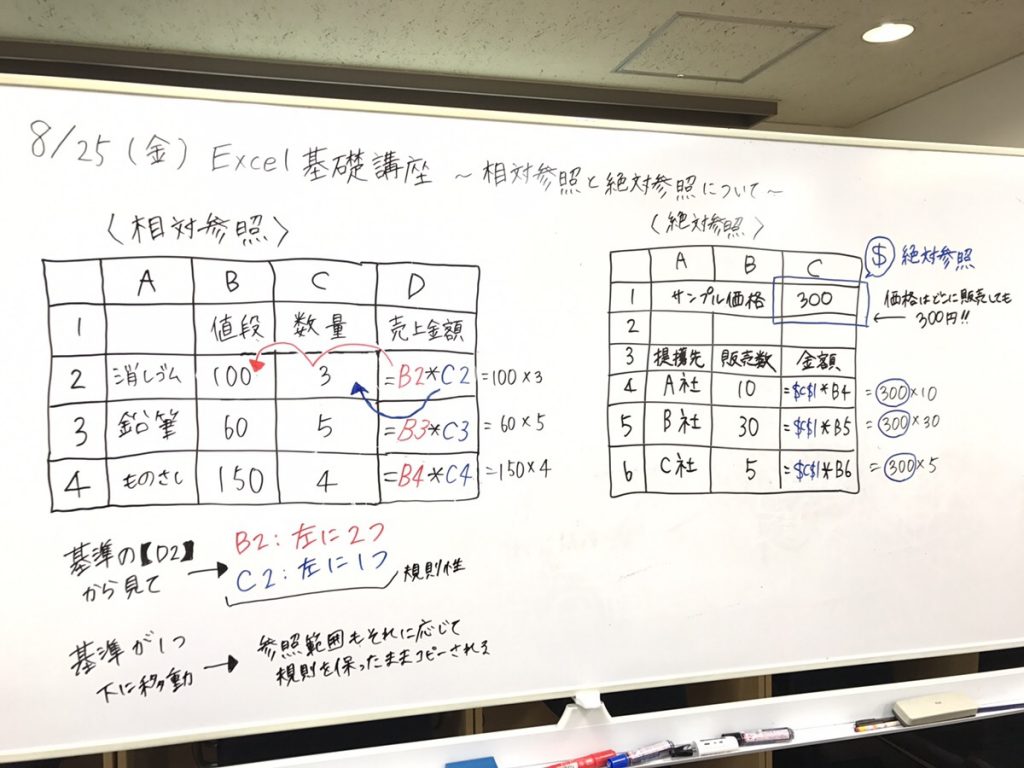 8/25(金) Excel 基礎講座 ~相対参照と絶対参照について~
〈相対参照〉
A B C D
1 値段 数量 売上金額
2 消しゴム 100 3 =B2*C2 =100×3
3 鉛筆 60 5 =B3*C3 =60×5
4 ものさし 150 4 =B4*C4 =150×4
基準の【D2】
から見て
B2:左に2つ
C2:左に1つ
規則性
基準が1つ
下に移動
参照範囲もそれに応じて
規則を保ったままコピーされる
〈絶対参照〉
$ 絶対参照
A B C
1 サンプル価格 300
価格はどこに販売しても
300円!!
2
3 販売数 金額
4 A社 10 =$C$1*B4 =300×10
5 B社 30 =$C$1*B5 =300×30
6 C社 5 =$C$1*B6 =300×5